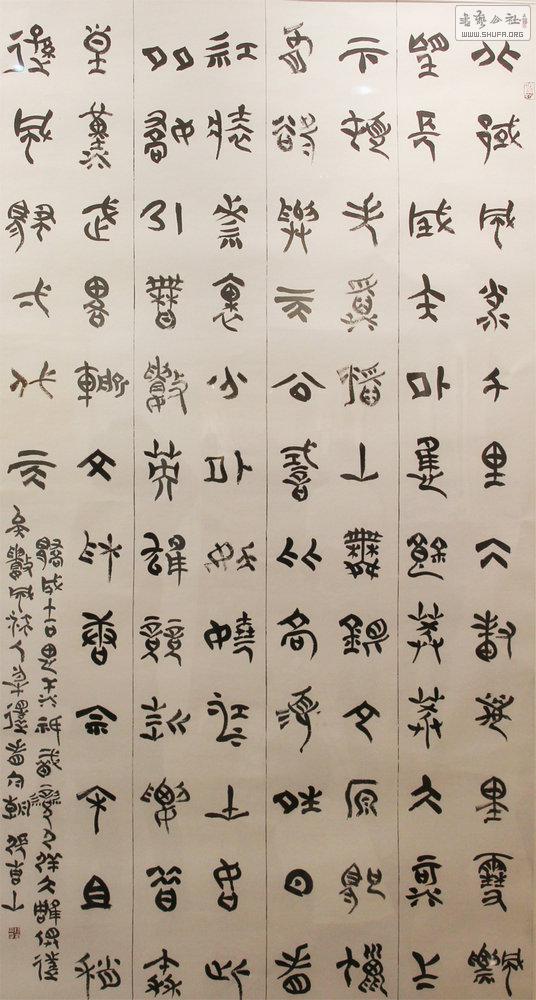 北國風光千里冰封萬里雪飄
望長城內外惟餘莽莽大河上
下頓失滔滔山舞銀蛇原馳蠟
象欲與天公試比高須晴日看
紅裝素裹分外妖嬈江山如此
多嬌引無數英雄競折腰惜秦
皇漢武略輸文采唐宗宋祖稍
遜風騷一代天
驕成吉思汗只識彎弓射大雕俱往
矣數風流人物還看今朝
書藝公社
WWW.SHUFA.ORG